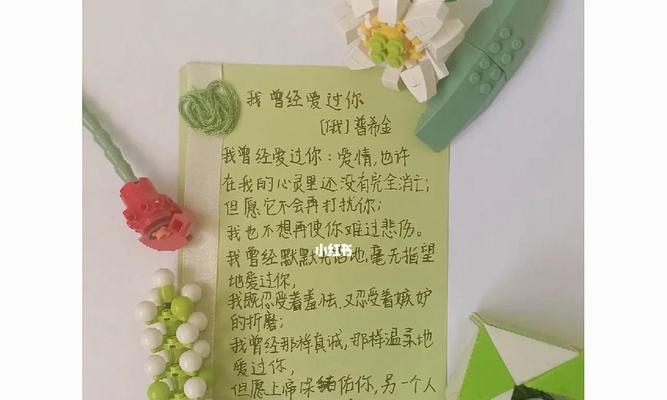 我曾经爱过你
[俄]普希金
我曾经爱过你：爱情，也许
在我的心灵里还没有完全消亡；
但愿它不会再打扰你；
我也不想再使你难过悲伤。
小红书
我曾经默默无语地，毫无指望
地爱过你，
我既忍受着羞怯，又忍受着嫉妒
的折磨；
我曾经那样真诚，那样温柔地
爱过你，
但愿上帝保佑你，另一个人